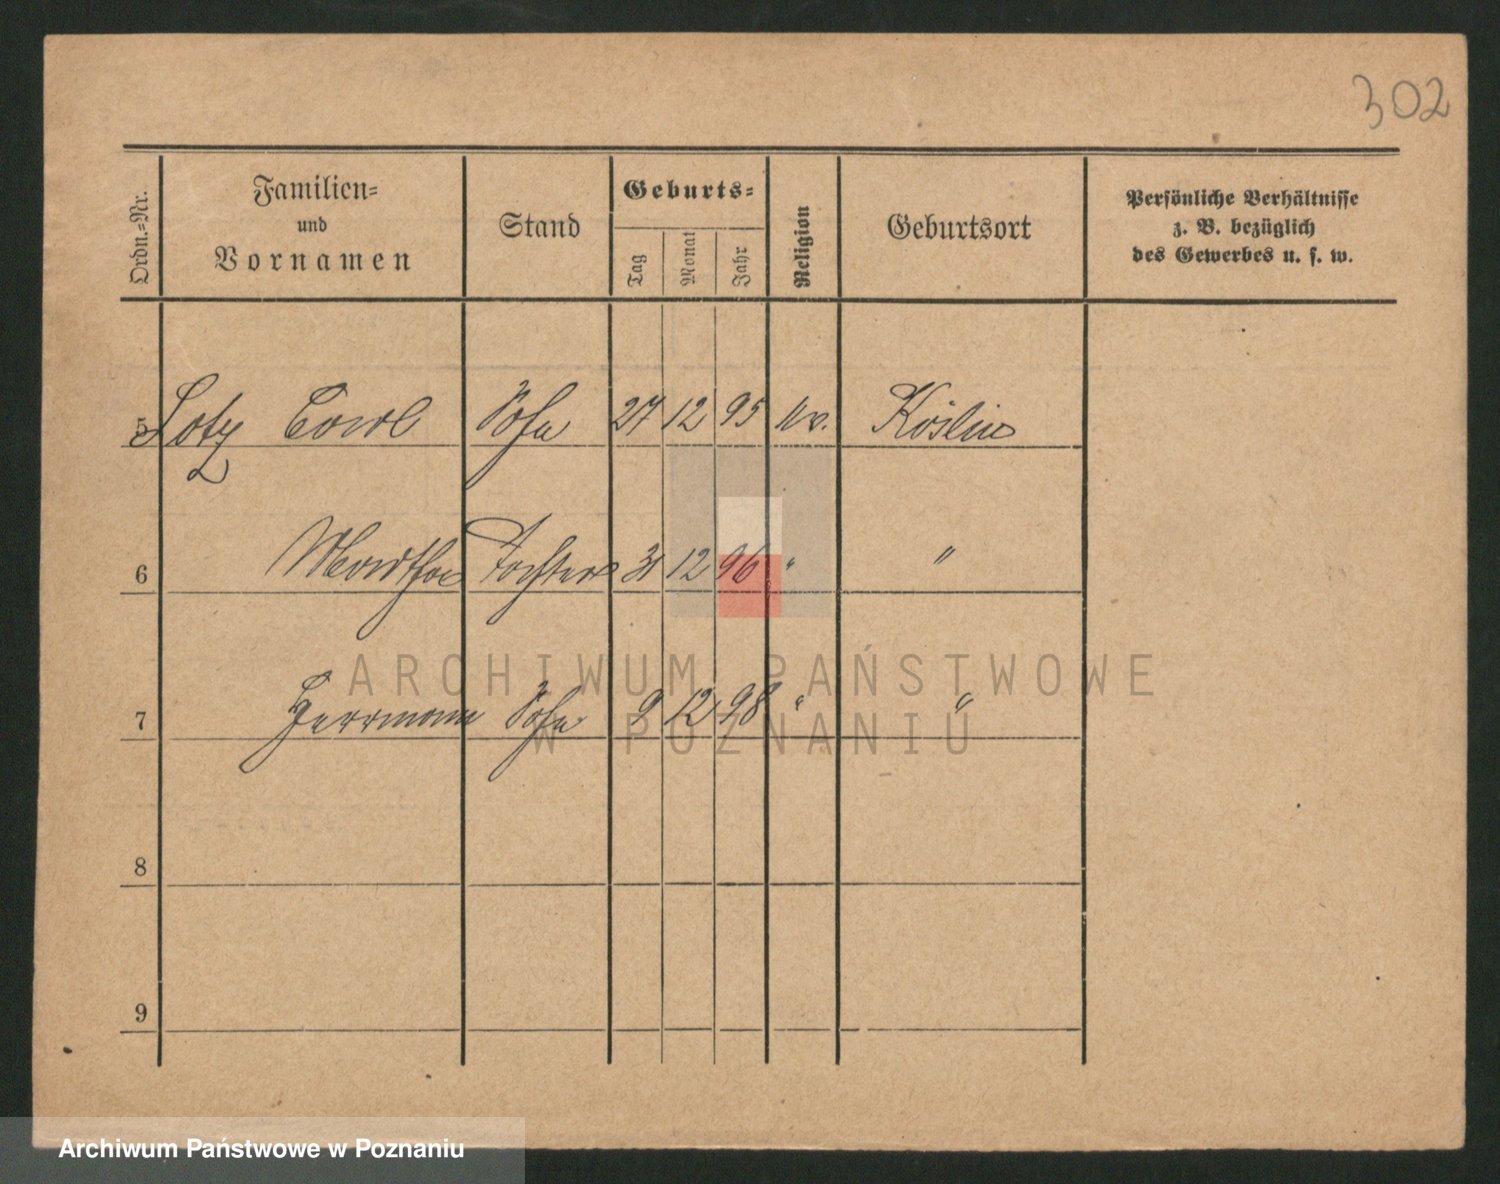 302
Ordn.=Nr.
Familien=
und
Vornamen
Stand
Geburts=
Tag
Monat
Jahr
Religion
Geburtsort
Persönliche Verhältnisse
z. B. bezüglich
des Gewerbes u. s. w.
5 Lotz Carl Sohn 27 12 95 ev. Köslin
6 Martha Tochter 31 12 96 " "
7 Herrmann Sohn 9 12 98 " "
8
9
ARCHIWUM PAŃSTWOWE
W POZNANIU
Archiwum Państwowe w Poznaniu